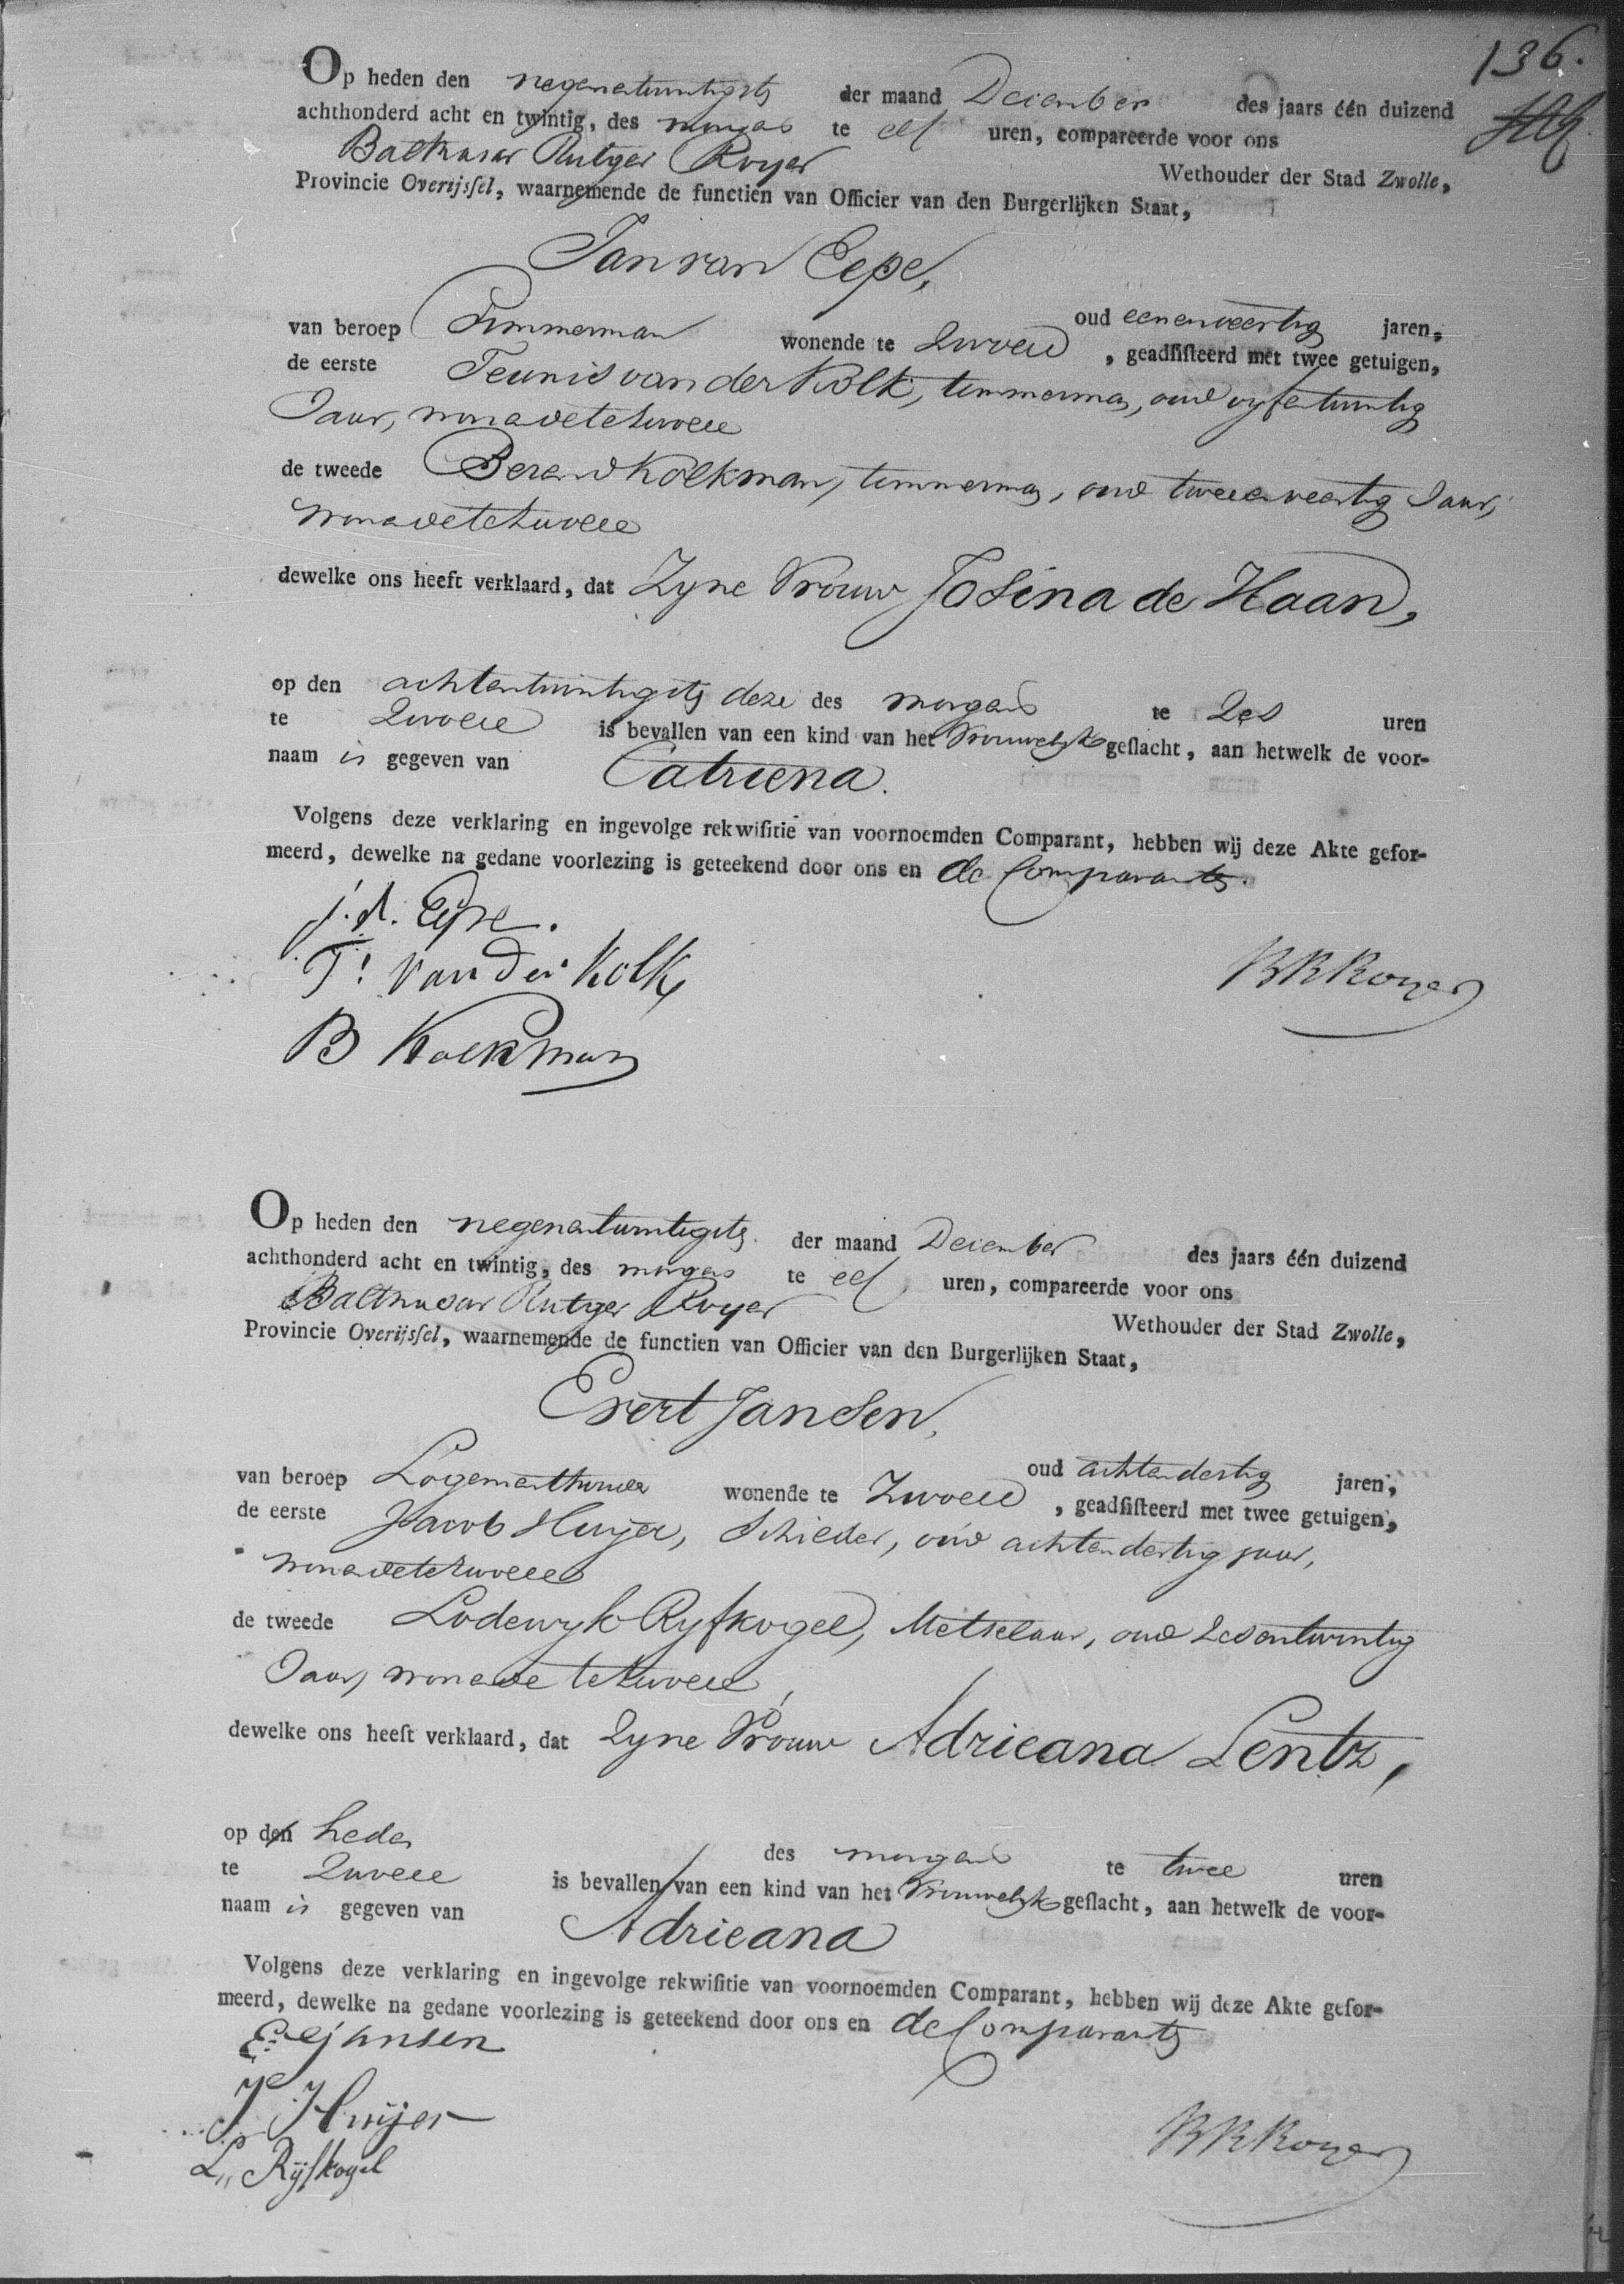 136.
Op heden den negenentwintigste der maand December des jaars één duizend
achthonderd acht en twintig, des morgens te elf uren, compareerde voor ons
Balthasar Rutger Royer Wethouder der Stad Zwolle,
Provincie Overijssel, waarnemende de functiën van Officier van den Burgerlijken Staat,
Jan van Eepe,
van beroep Timmerman wonende te Zwolle oud eenenveertig jaren,
, geadsisteerd met twee getuigen,
de eerste Teunis van der Kolk, timmerman, oud vyfentwintig
Jaar, wonende te Zwolle
de tweede Berend Kolkman, timmerman, oud tweeenveertig Jaar,
wonende te Zwolle
dewelke ons heeft verklaard, dat Zyne Vrouw Josina de Haan,
op den achtentwintigste deze des morgens te Zes uren
te Zwolle is bevallen van een kind van het Vrouwelyk geslacht, aan hetwelk de voor-
naam is gegeven van Catriena.
Volgens deze verklaring en ingevolge rekwisitie van voornoemden Comparant, hebben wij deze Akte gefor-
meerd, dewelke na gedane voorlezing is geteekend door ons en de Comparanten.
T. van der Kolk
BRRoyer
B Kolkman
Op heden den negenentwintigste der maand December des jaars één duizend
achthonderd acht en twintig, des morgens te elf uren, compareerde voor ons
Balthasar Rutger Royer Wethouder der Stad Zwolle,
Provincie Overijssel, waarnemende de functien van Officier van den Burgerlijken Staat,
Evert Jansen,
van beroep Logementhouder wonende te Zwolle oud achtendertig jaren,
, geadsisteerd met twee getuigen,
de eerste Jacob Huyer, Schilder, oud achtendertig jaar,
wonende te Zwolle
de tweede Lodewyk Ryfkogel, Metselaar, oud Zesentwintig
Jaar, wonende te Zwolle,
dewelke ons heeft verklaard, dat Zyne Vrouw Adrieana Lentz,
op den heden des morgens te twee uren
te Zwolle is bevallen van een kind van het Vrouwelyk geslacht, aan hetwelk de voor-
naam is gegeven van Adrieana
Volgens deze verklaring en ingevolge rekwisitie van voornoemden Comparant, hebben wij deze Akte gefor-
meerd, dewelke na gedane voorlezing is geteekend door ons en de Comparanten
E Jansen
J Huijer
BRRoyer
L,, Rijfkogel